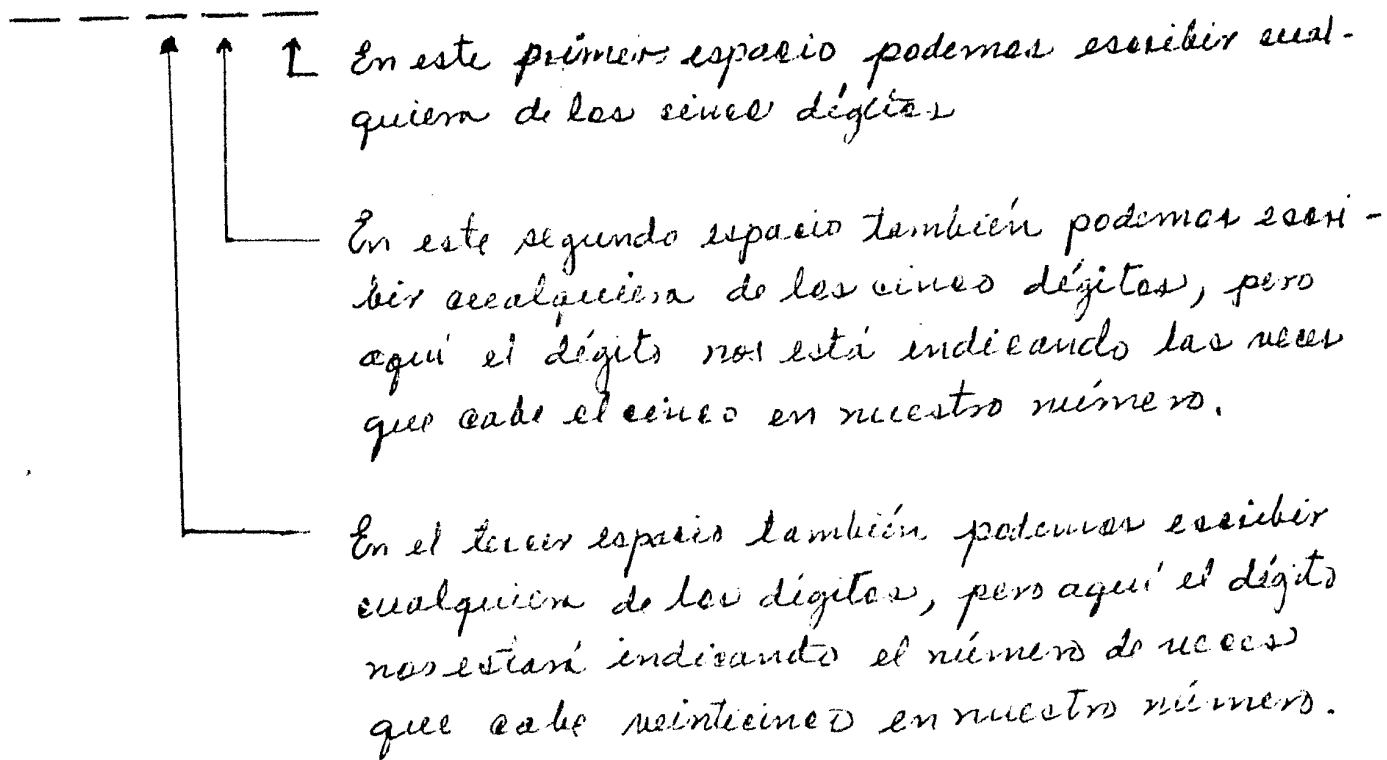 En este primer espacio podemos escribir cual-
quiera de los cinco dígitos
En este segundo espacio también podemos escri-
bir cualquiera de los cinco dígitos, pero
aquí el dígito nos está indicando las veces
que cabe el cinco en nuestro número.
En el tercer espacio también podemos escribir
cualquiera de los dígitos, pero aquí el dígito
nos estará indicando el número de veces
que cabe veinticinco en nuestro número.